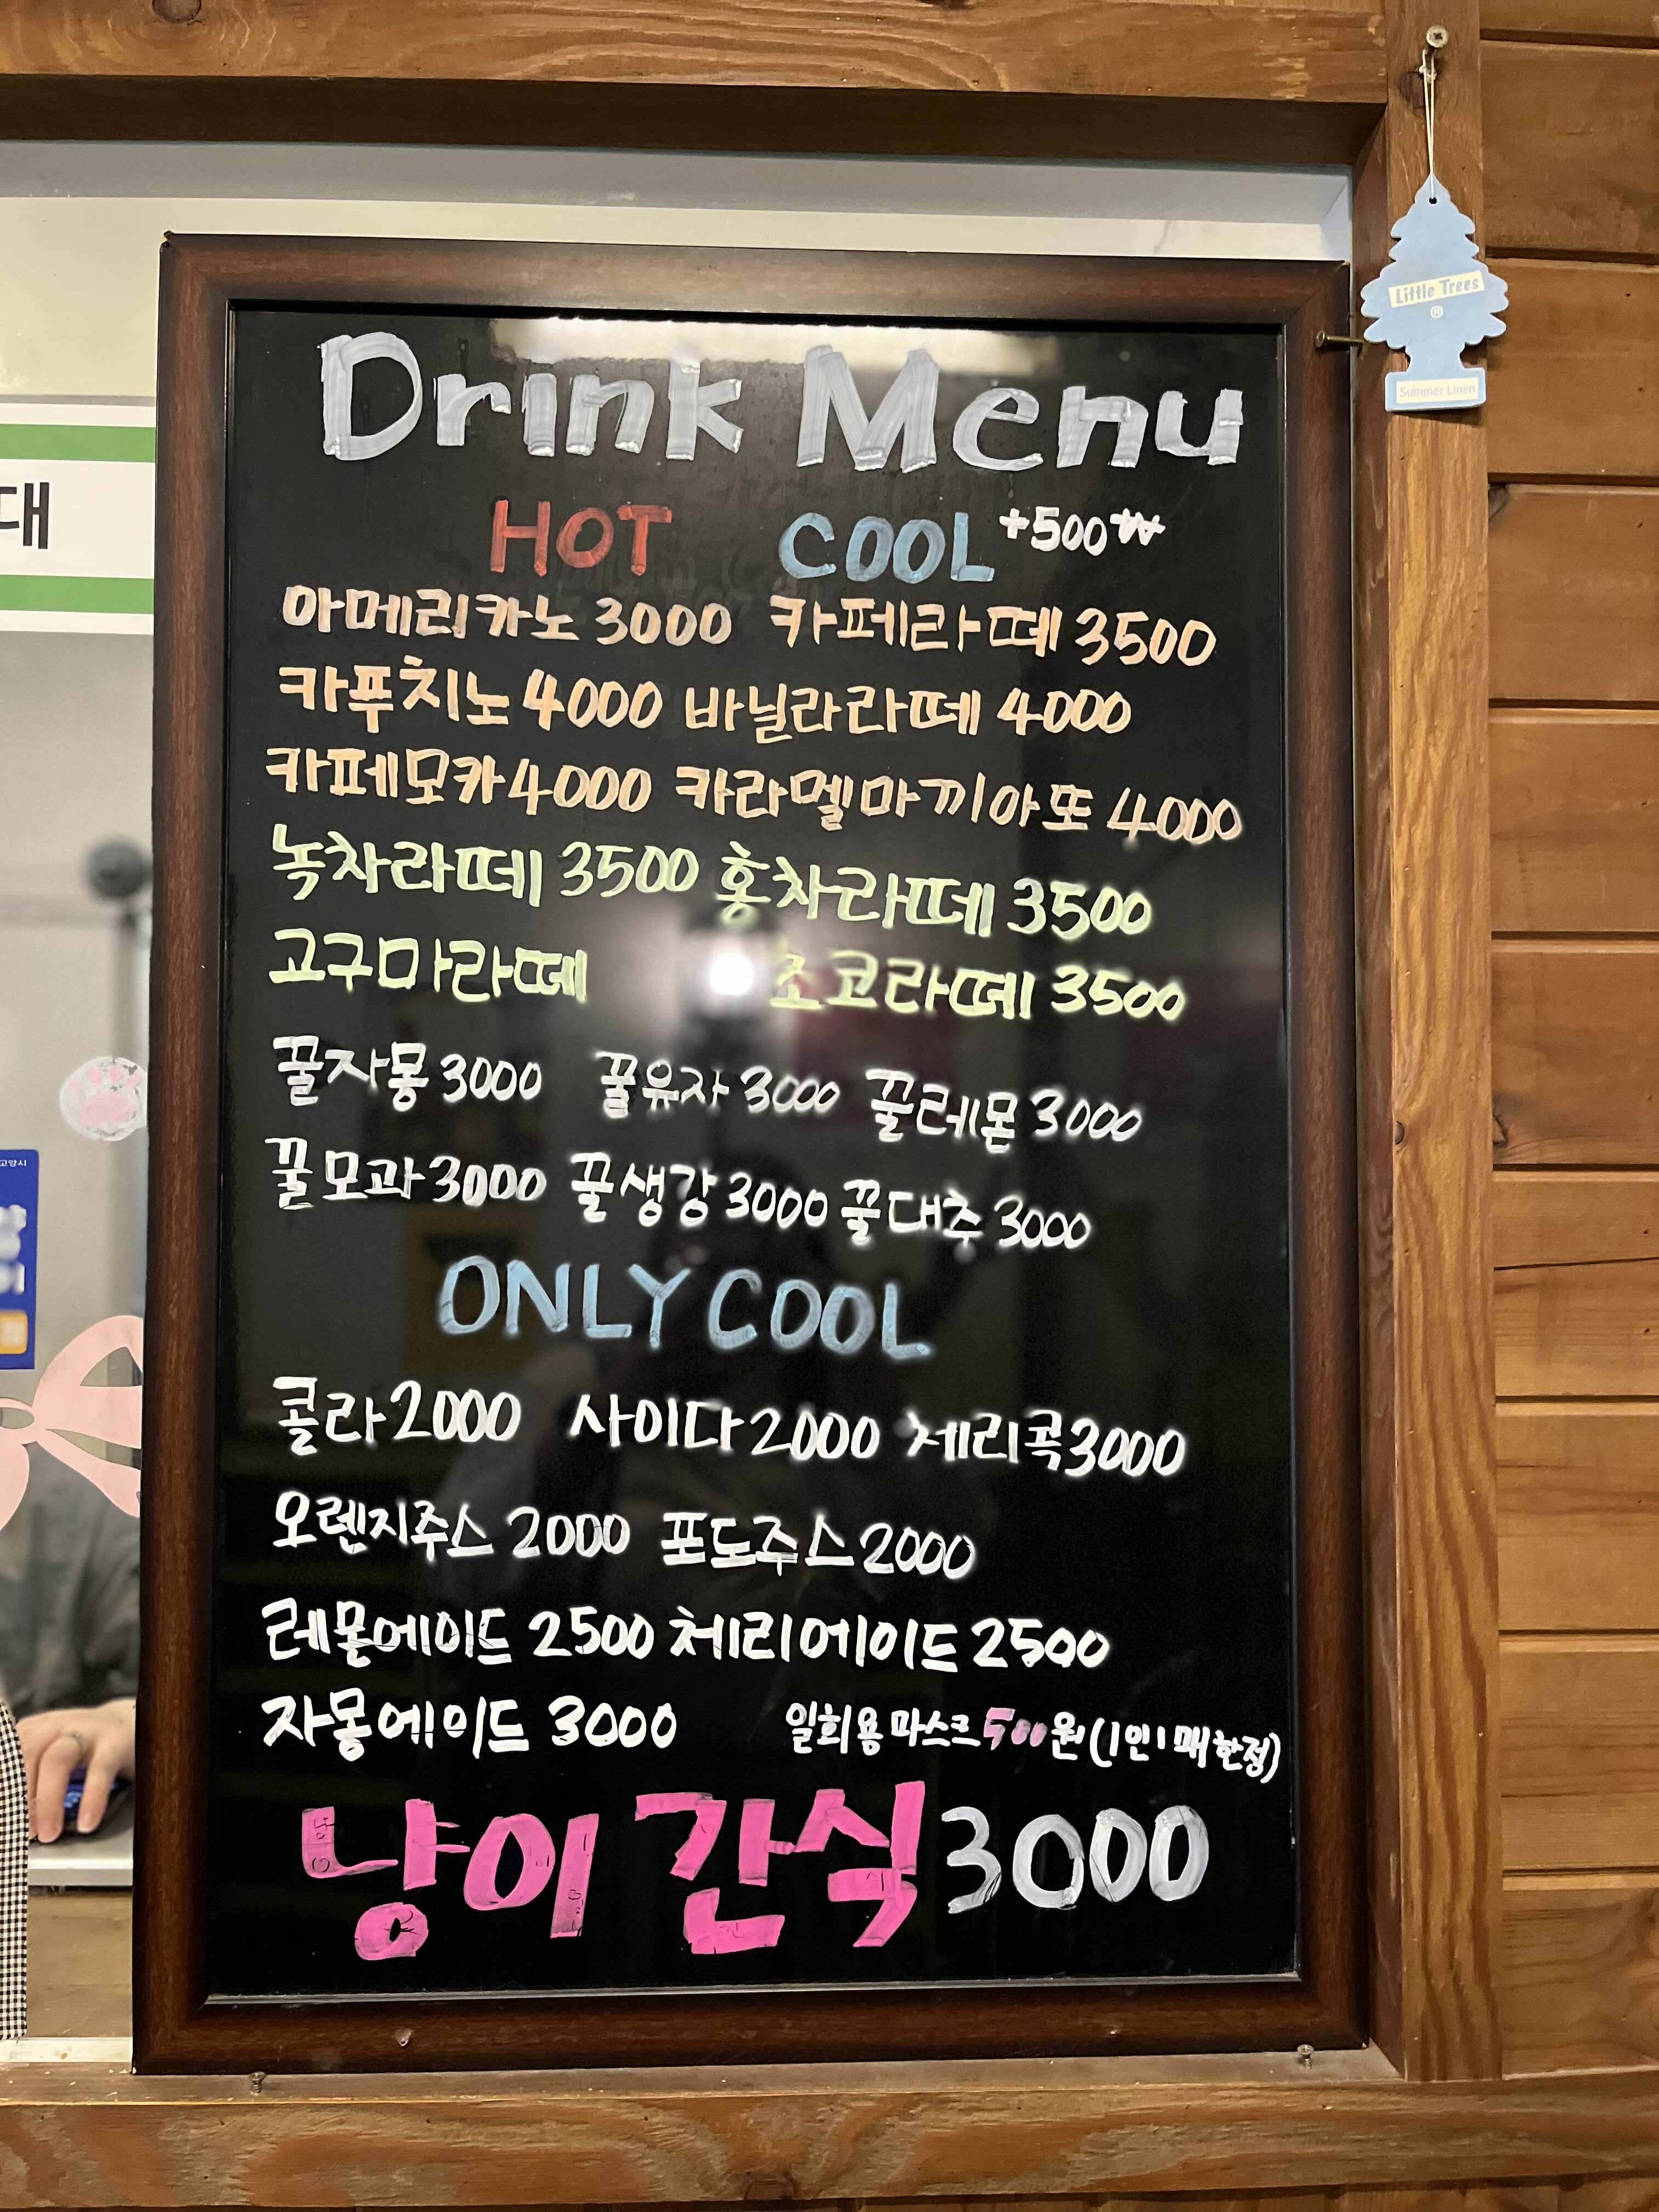 Drink Menu
HOT COOL +500₩
아메리카노 3000 카페라떼 3500
카푸치노 4000 바닐라라떼 4000
카페모카 4000 카라멜마끼아또 4000
녹차라떼 3500 홍차라떼 3500
고구마라떼 초코라떼 3500
꿀자몽 3000 꿀유자 3000 꿀레몬 3000
꿀모과 3000 꿀생강 3000 꿀대추 3000
ONLY COOL
콜라 2000 사이다 2000 체리콕 3000
오렌지주스 2000 포도주스 2000
레몬에이드 2500 체리에이드 2500
자몽에이드 3000 일회용마스크 500원 (1인1매 한정)
냥이 간식 3000
Little Trees
®
Summer Linen
대
고양시